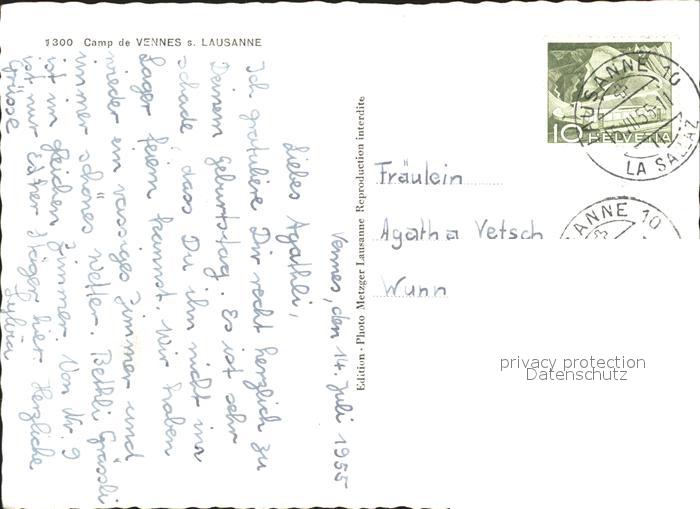 1300 Camp de VENNES s. LAUSANNE
Vennes, den 14. Juli 1955
Liebes Agathli,
Ich gratuliere Dir recht herzlich zu
Deinem Geburtstag. Es ist sehr
schade, dass Du ihn nicht im
Lager feiern kannst. Wir haben
wieder ein rassiges Zimmer und
immer schönes Wetter. Bethli Grässli
ist im gleichen Zimmer. Von Nr. 9
ist nur Esther Häger hier. Herzliche
Grüsse Sylvia
Edition - Photo Metzger Lausanne Reproduction interdite
10 HELVETIA
LAUSANNE 10
LA SALLAZ
ANNE 10
Fräulein
Agatha Vetsch
Wunn
privacy protection
Datenschutz